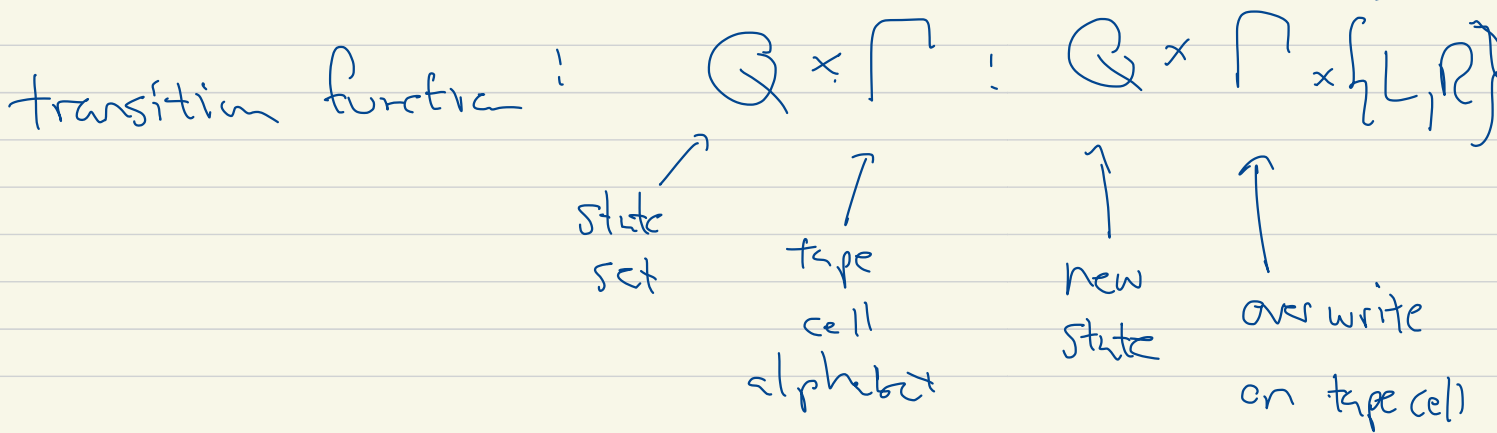 transition function : Q × Γ : Q × Γ × {L,R}
state set
tape cell alphabet
new state
overwrite on tape cell